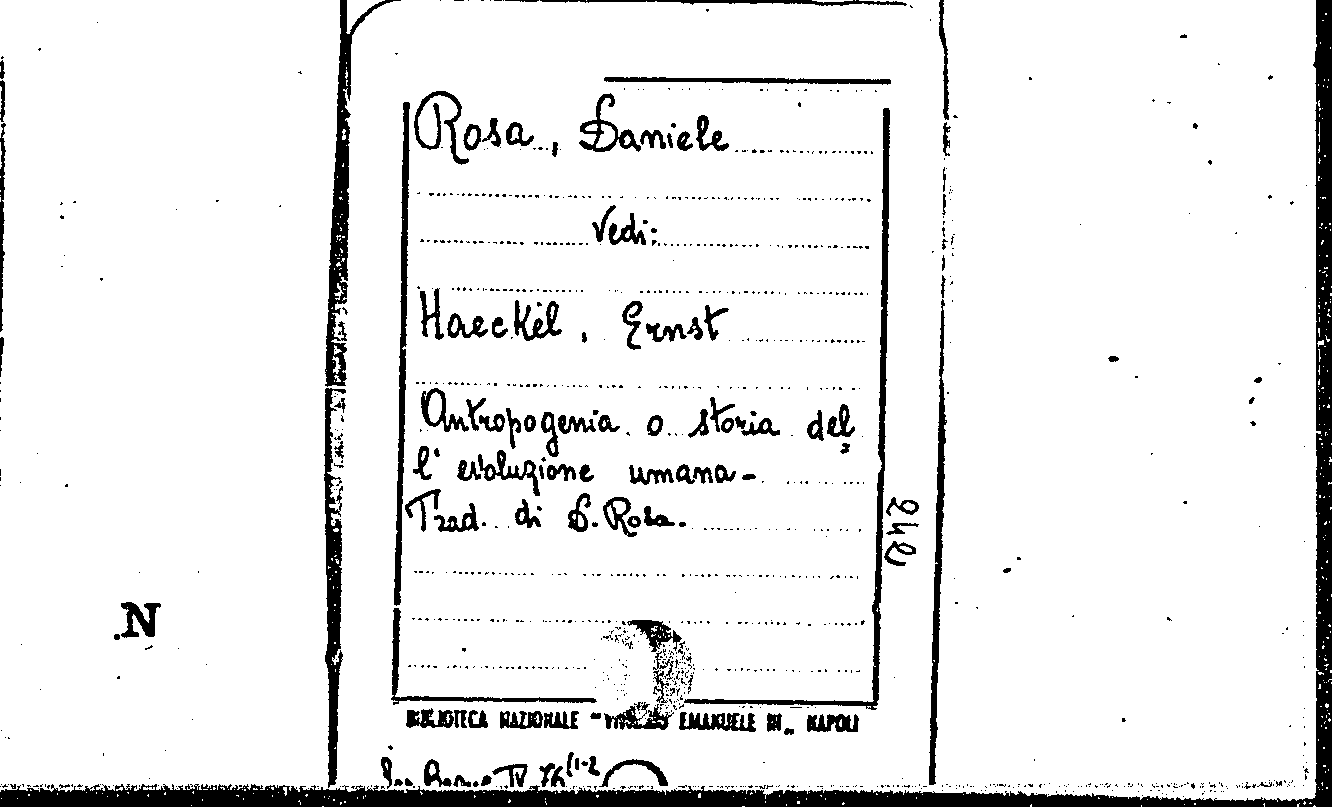 Rosa, Daniele
Vedi:
Haeckel, Ernst
Antropogenia o storia del=
l'evoluzione umana-
Trad. di D. Rosa.
242
N
BIBLIOTECA NAZIONALE "VITTORIO EMANUELE III" NAPOLI
IV 76 (1-2